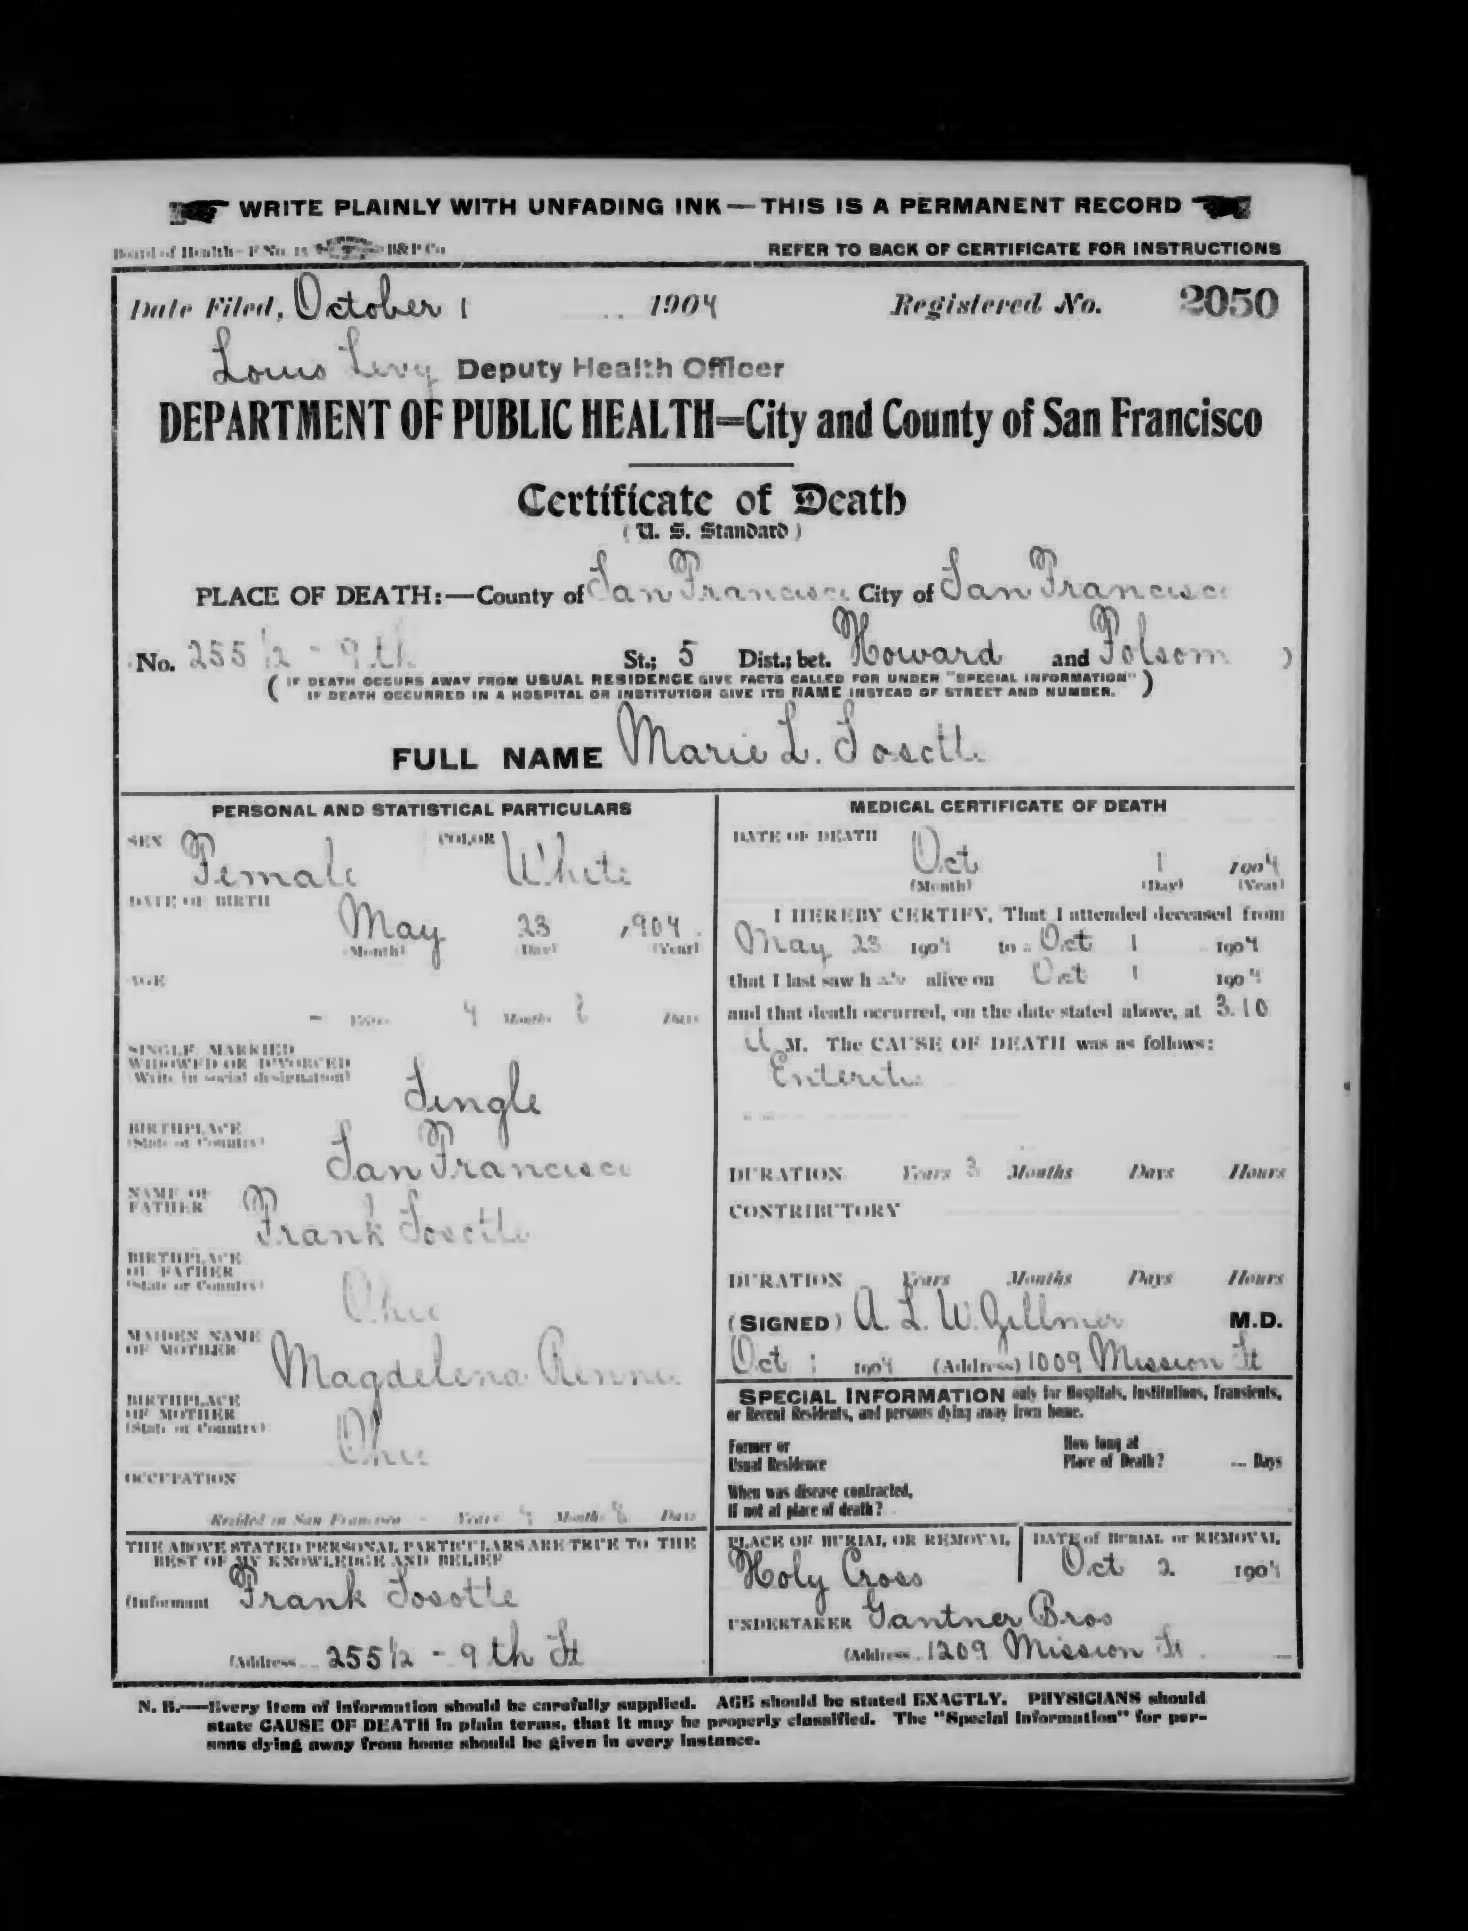 WRITE PLAINLY WITH UNFADING INK — THIS IS A PERMANENT RECORD
Board of Health—F No. 15 B&P Co
REFER TO BACK OF CERTIFICATE FOR INSTRUCTIONS
Date Filed, October 1 1904 Registered No. 2050
Louis Levy Deputy Health Officer
DEPARTMENT OF PUBLIC HEALTH=City and County of San Francisco
Certificate of Death
(U. S. Standard)
PLACE OF DEATH:—County of San Francisco City of San Francisco
No. 255 1/2 - 9th St.; 5 Dist.; bet. Howard and Folsom )
( IF DEATH OCCURS AWAY FROM USUAL RESIDENCE GIVE FACTS CALLED FOR UNDER "SPECIAL INFORMATION" )
IF DEATH OCCURRED IN A HOSPITAL OR INSTITUTION GIVE ITS NAME INSTEAD OF STREET AND NUMBER.
FULL NAME Marie L. Sosotte
PERSONAL AND STATISTICAL PARTICULARS
SEX Female COLOR White
DATE OF BIRTH
May 23 1904
(Month) (Day) (Year)
AGE
- Years 4 Months 8 Days
SINGLE, MARRIED
WIDOWED OR DIVORCED
(Write in social designation)
Single
BIRTHPLACE
(State or Country)
San Francisco
NAME OF
FATHER
Frank Sosotte
BIRTHPLACE
OF FATHER
(State or Country)
Ohio
MAIDEN NAME
OF MOTHER
Magdelena
BIRTHPLACE
OF MOTHER
(State or Country)
Ohio
OCCUPATION
Resided in San Francisco - Years 4 Months 8 Days
THE ABOVE STATED PERSONAL PARTICULARS ARE TRUE TO THE
BEST OF MY KNOWLEDGE AND BELIEF
(Informant Frank Sosotte
(Address 255 1/2 - 9th St
MEDICAL CERTIFICATE OF DEATH
DATE OF DEATH
Oct 1 1904
(Month) (Day) (Year)
I HEREBY CERTIFY, That I attended deceased from
May 23 1904 to Oct 1 1904
that I last saw h alive on Oct 1 1904
and that death occurred, on the date stated above, at 3.10
M. The CAUSE OF DEATH was as follows:
Enteritis
DURATION Years 3 Months Days Hours
CONTRIBUTORY
DURATION Years Months Days Hours
(SIGNED) A. L. W. Gillmer M.D.
Oct 1 1904 (Address) 1009 Mission St
SPECIAL INFORMATION only for Hospitals, Institutions, Transients,
or Recent Residents, and persons dying away from home.
Former or
Usual Residence
How long at
Place of Death? Days
When was disease contracted,
If not at place of death?
PLACE OF BURIAL OR REMOVAL
Holy Cross
DATE of BURIAL or REMOVAL
Oct 2 1904
UNDERTAKER Gantner Bros
(Address 1209 Mission St
N. B.—Every item of information should be carefully supplied. AGE should be stated EXACTLY. PHYSICIANS should
state CAUSE OF DEATH in plain terms, that it may be properly classified. The "Special Information" for per-
sons dying away from home should be given in every instance.